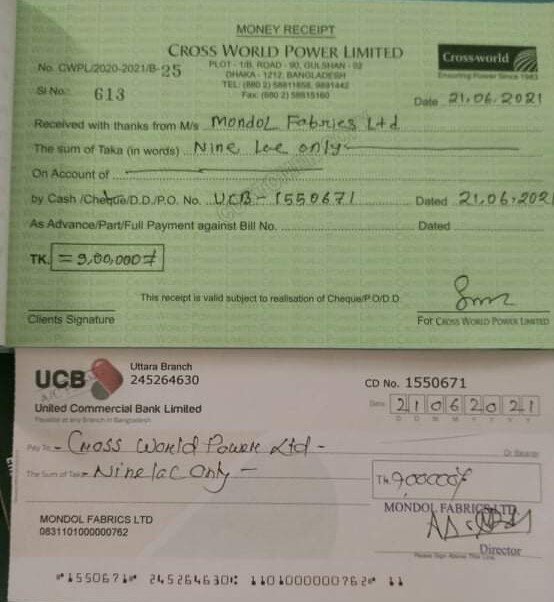 MONEY RECEIPT
CROSS WORLD POWER LIMITED
PLOT - 1/B, ROAD - 90, GULSHAN - 02
DHAKA - 1212, BANGLADESH
TEL: (880 2) 58811658, 9891442
Fax: (880 2) 58815160
Crossworld
Ensuring Power Since 1983
No. CWPL/2020-2021/B-25
Sl No.: 613
Date 21.06.2021
Received with thanks from M/s Mondol Fabries Ltd
The sum of Taka (in words) Nine Lee only
On Account of
by Cash /Cheque/D.D./P.O. No. UCB-1550671 Dated 21.06.2021
As Advance/Part/Full Payment against Bill No. Dated
TK. = 9,00,000/=
This receipt is valid subject to realisation of Cheque/P.O/D.D.
Clients Signature
For CROSS WORLD POWER LIMITED
UCB
Uttara Branch
245264630
CD No. 1550671
United Commercial Bank Limited
Payable at any Branch in Bangladesh
Date 21062021
D D M M Y Y Y Y
Pay To Cross World Power Ltd - Or Bearer
The Sum of Taka Nine lac Only -
Tk 9,00000/
MONDOL FABRICS LTD
0831101000000762
MONDOL FABRICS LTD.
Director
Please Sign Above This Line
1550671 245264630 1101000000762 11